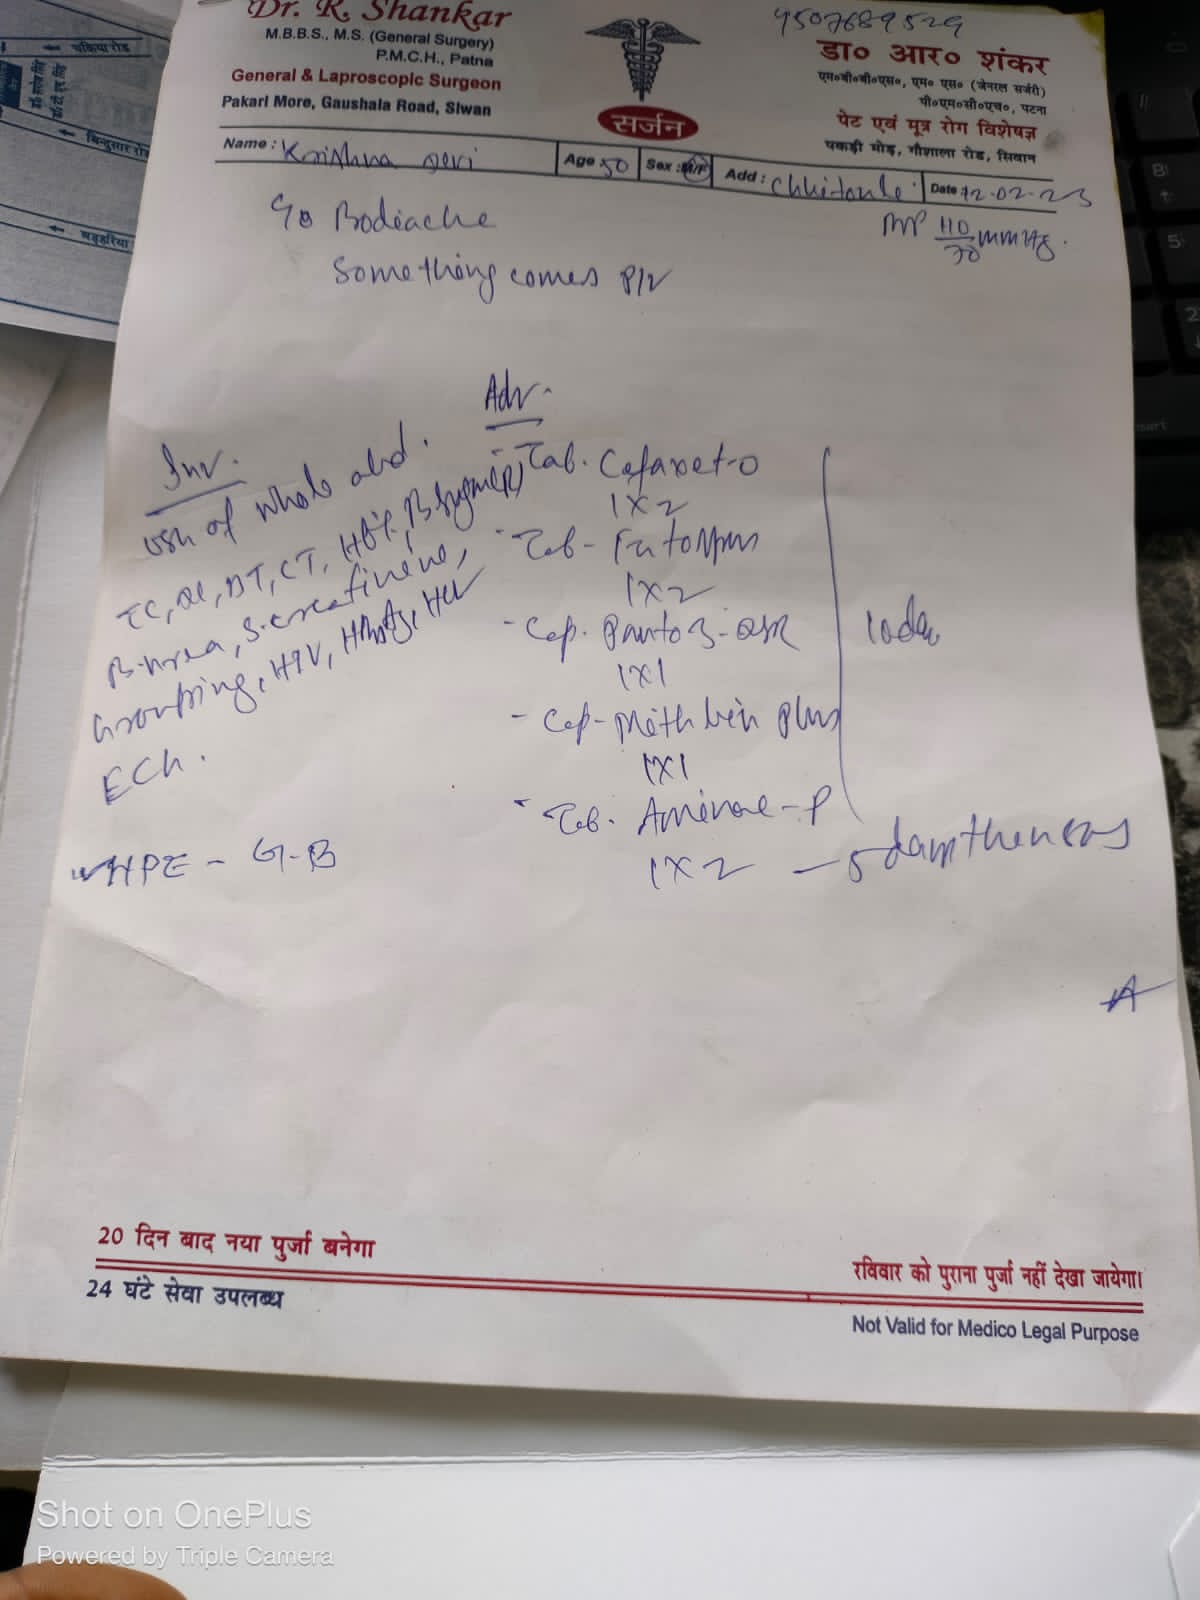 Dr. R. Shankar
M.B.B.S., M.S. (General Surgery)
P.M.C.H., Patna
General & Laproscopic Surgeon
Pakari More, Gaushala Road, Siwan
सर्जन
9507689529
डा० आर० शंकर
एम०बी०बी०एस०, एम० एस० (जेनरल सर्जरी)
पी०एम०सी०एच०, पटना
पेट एवं मूत्र रोग विशेषज्ञ
पकड़ी मोड़, गौशाला रोड, सिवान
Name: Krishna Devi Age 50 Sex: M/F Add: Date 12-02-23
BP 110/70 mmHg.
Bodieache
Something comes P/V
Inv.
USG of whole abd.
TC, DC, BT, CT, HB%, B.
B-urea, S-creatinine,
Grouping, HIV, HBsAg, HCV
ECG.
HPE - G-B
Adv.
- Tab. Cefaxet-O
1X2
- Tab-
1X2
- Cap. 
1X1
- Cap- plus
1X1
- Tab. -P
1X2 - 5 days then sos
10 days
20 दिन बाद नया पुर्जा बनेगा
24 घंटे सेवा उपलब्ध
रविवार को पुराना पुर्जा नहीं देखा जायेगा।
Not Valid for Medico Legal Purpose
चकिया रोड
बिन्दुसार रोड
Shot on OnePlus
Powered by Triple Camera